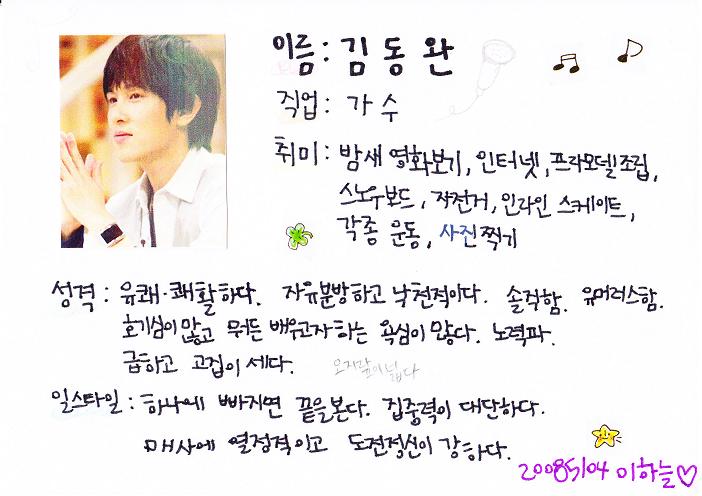 이름: 김동완
직업: 가수
취미: 밤새 영화보기, 인터넷, 프라모델조립,
스노우보드, 자전거, 인라인 스케이트,
각종 운동, 사진찍기
성격: 유쾌·쾌활하다. 자유분방하고 낙천적이다. 솔직함. 유머러스함.
호기심이 많고 뭐든 배우고자 하는 욕심이 많다. 노력파.
급하고 고집이 세다. 오지랖이 넓다
일스타일: 하나에 빠지면 끝을본다. 집중력이 대단하다.
매사에 열정적이고 도전정신이 강하다.
20085/04 이하늘♡